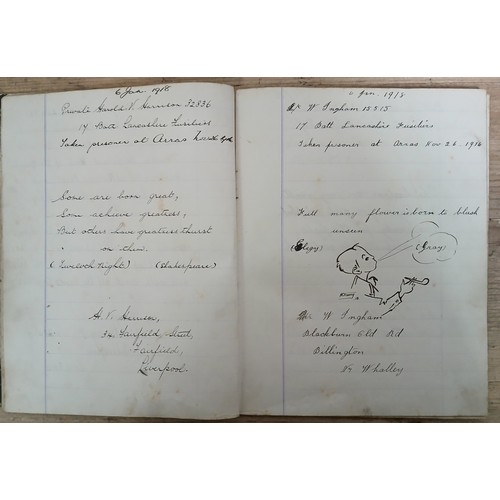 6 Jan. 1918
Private Harold V. Harrison 32836
17 Batt. Lancashire Fusiliers
Taken prisoner at Arras
Some are born great,
Some achieve greatness,
But others have greatness thirst
on them.
(Twelvth Night) (Shakespeare)
H. V. Harrison,
34 Fairfield Street,
Fairfield,
Liverpool
6 Jan. 1918
W Ingham 15515
17 Batt Lancashire Fusiliers
Taken prisoner at Arras Nov 26. 1916
Full many flower is born to blush
unseen
(Elegy) (Gray)
W Ingham
Blackburn Old Rd
Billington
Nr Whalley